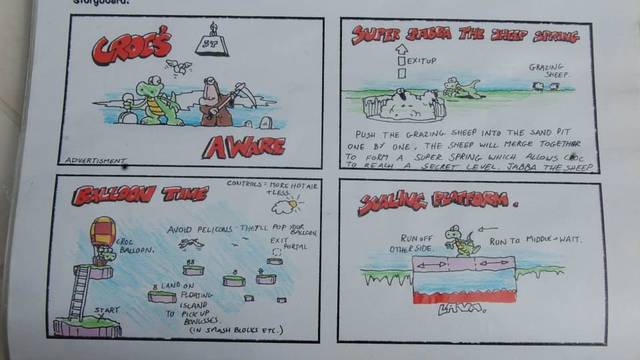 storyboard.
CROC'S
5T
AWARE
ADVERTISMENT
SUPER JABBA THE SHEEP SPRING
EXIT UP
GRAZING
SHEEP.
PUSH THE GRAZING SHEEP INTO THE SAND PIT
ONE BY ONE. THE SHEEP WILL MERGE TOGETHER
TO FORM A SUPER SPRING WHICH ALLOWS CROC
TO REACH A SECRET LEVEL. JABBA THE SHEEP
BALLOON TIME
CONTROLS = MORE HOT AIR
+ LESS.
AVOID PELICONS - THEY'LL POP YOUR
BALLOON.
EXIT
PORTAL
CROC
BALLOON.
START
8 LAND ON
FLOATING
ISLAND
TO PICK UP
BONUSSES.
(IN SMASH BLOCKS ETC.)
PLATFORM.
RUN OFF
OTHER SIDE.
RUN TO MIDDLE + WAIT.
LAVA.